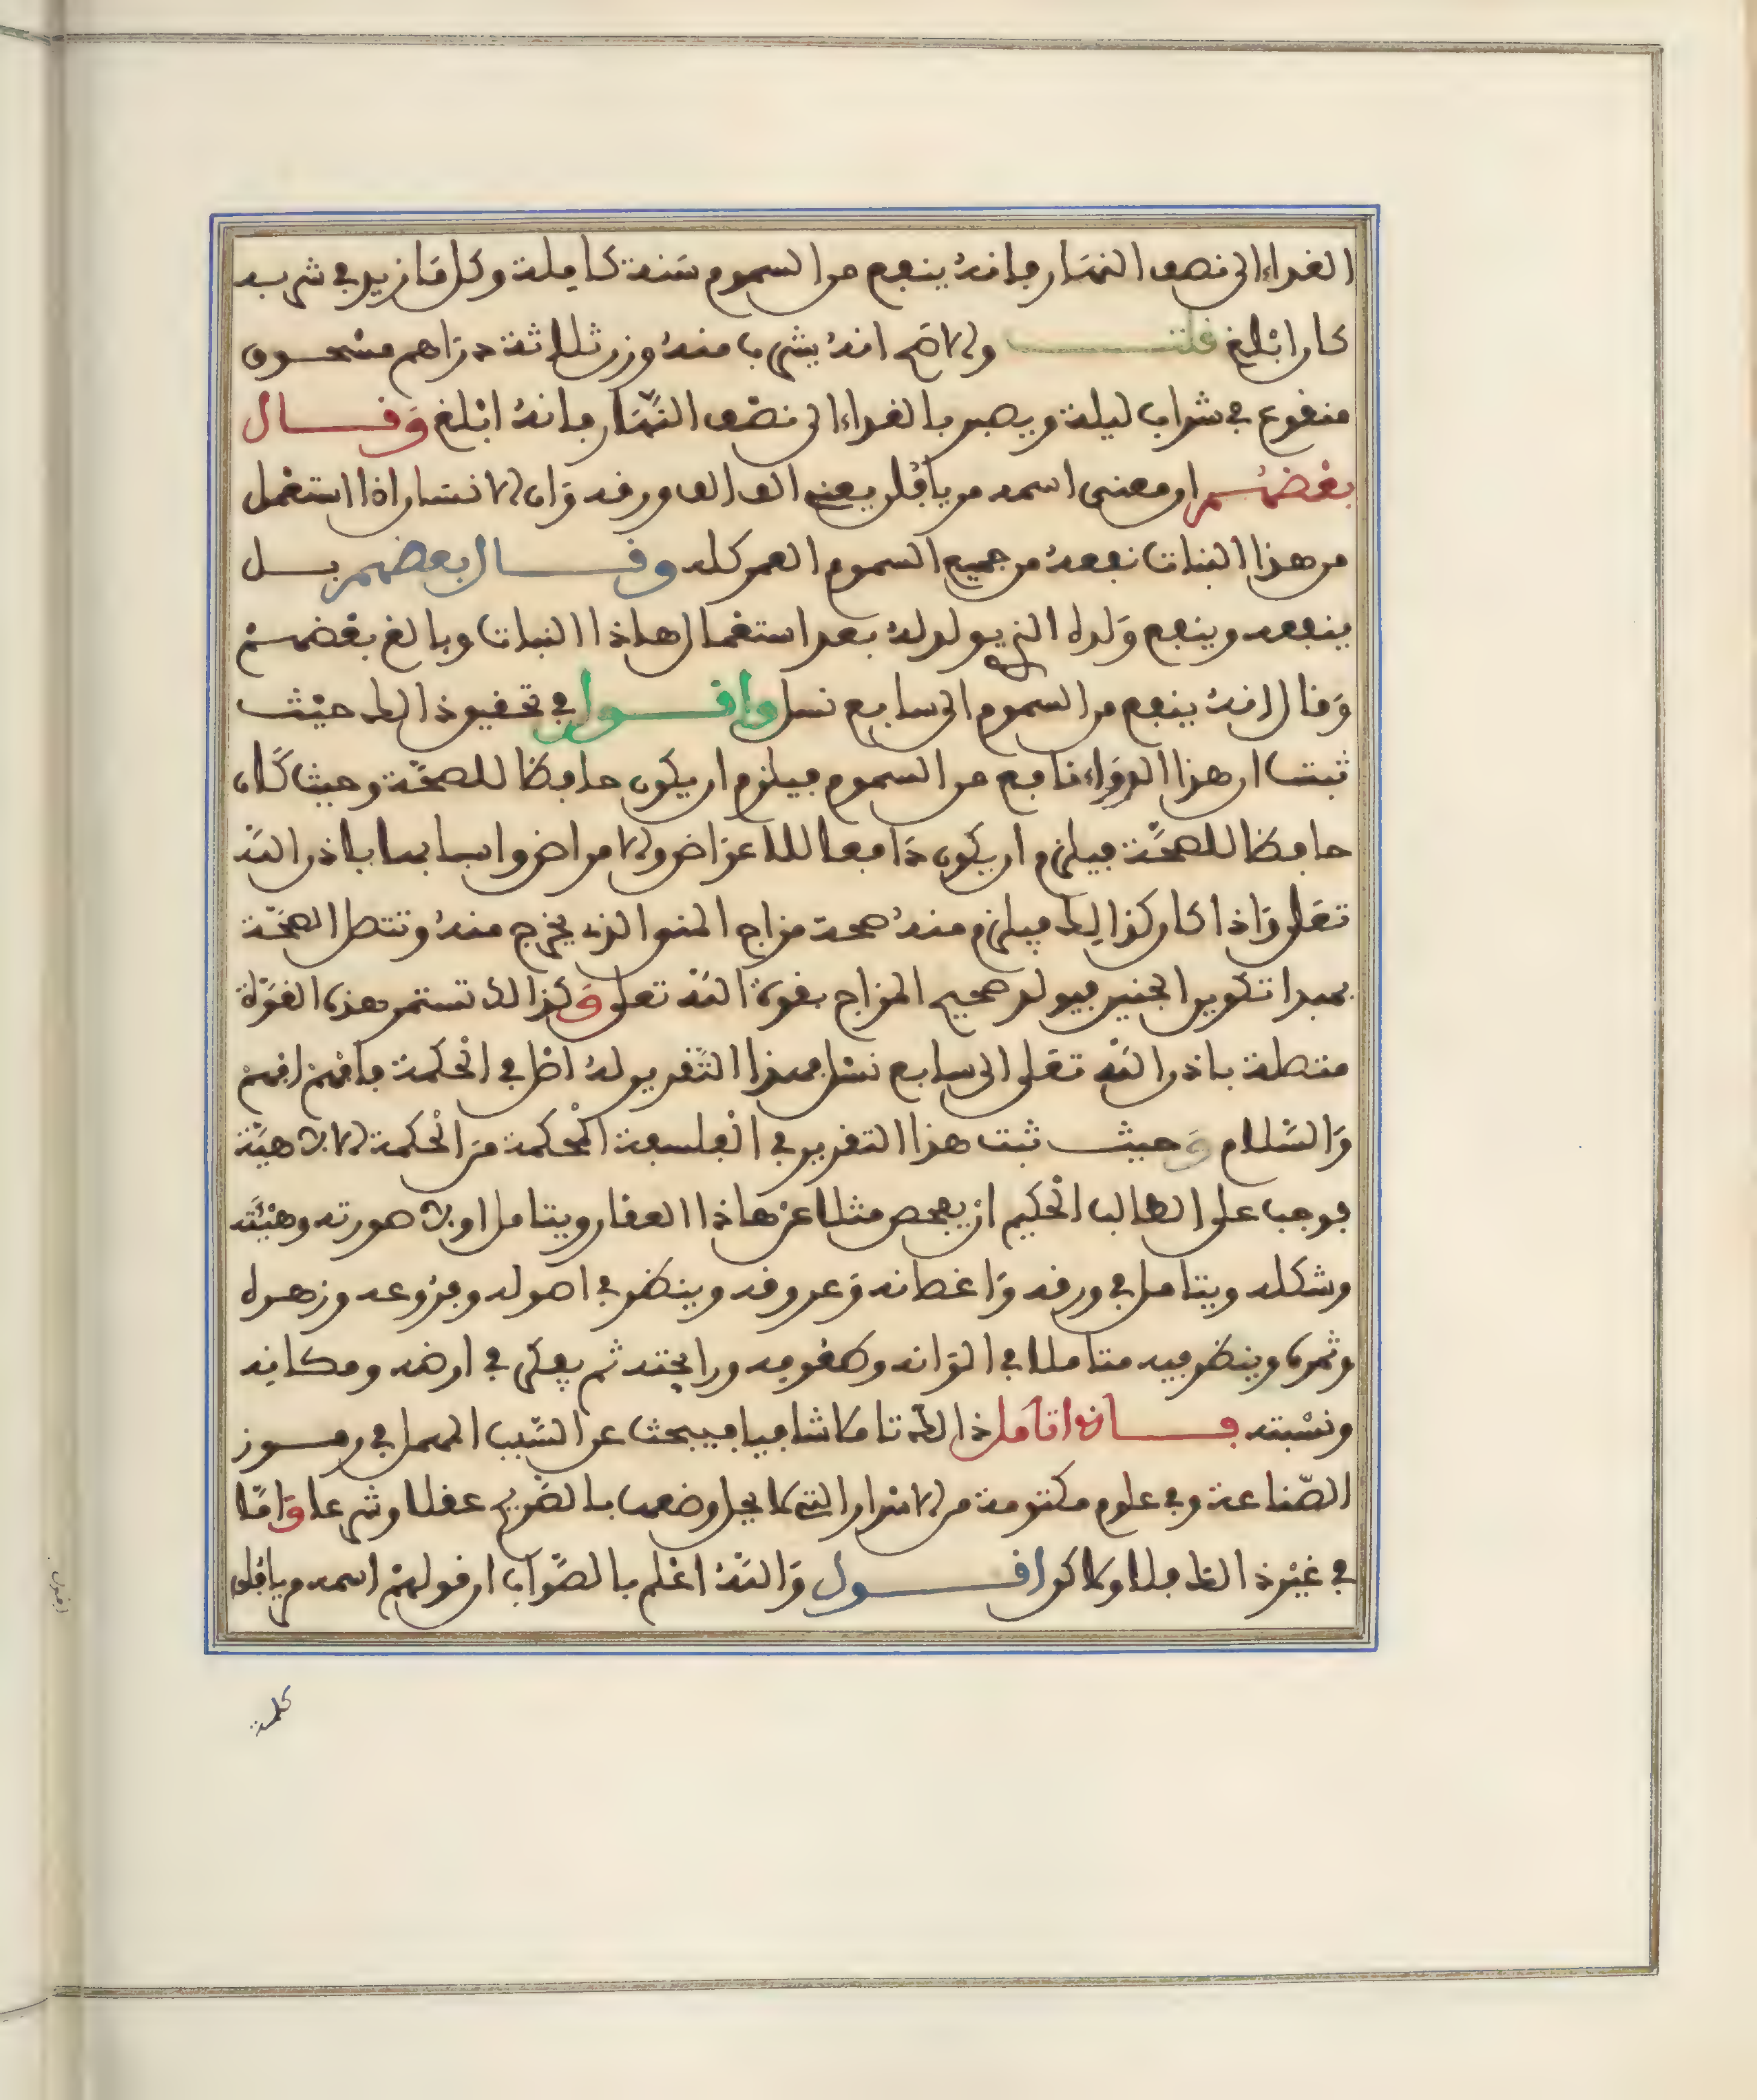 الغداء الى نصف النهار فانه ينفع من السموم سنة كاملة وكل ما زيد في شربه
كان ابلغ قلت والاصح انه يشرب منه وزن ثلاثة دراهم مسحوق
منقوع في شراب ليلة ويصبر بالغداء الى نصف النهار فانه ابلغ وقال
بعضهم ان معنى اسمه مريافلن يعني الف الف ورقه وان الانسان اذا استعمل
من هذا النبات نفعه من جميع السموم العمر كله وقال بعضهم بل
ينفعه وينفع ولده الذي يولد له بعد استعمال هاذا النبات وبالغ بعضهم
وقال انه ينفع من السموم الى سابع نسل واقول في تحقيق ذالك حيث
ثبت ان هذا الدواء نافع من السموم فيلزم ان يكون حافظا للصحة وحيث كان
حافظا للصحة فيلزم ان يكون دافعا للاعراض والامراض واسبابها باذن الله
تعلى واذا كان كذالك فيلزم منه صحة مزاج المني الذي يخرج منه وتتصل الصحة
بمبدا تكوين الجنين فيولد صحيح المزاج بقوة الله تعلى وكذالك تستمر هذه القوة
متصلة باذن الله تعلى الى سابع نسل فهذا التقرير له اصل في الحكمة فافهم افهم
والسلام وحيث ثبت هذا التقرير في الفلسفة المحكمة من الحكمة الالاهية
فوجب على الطالب الحكيم ان يفحص مثلا عن هاذا العقار ويتامل اولا صورته وهيئته
وشكله ويتامل في ورقه واغصانه وعروقه وينظر في اصوله وفروعه وزهره
وثمره وينظر فيه متاملا في الوانه وطعومه ورايحته ثم يفكر في ارضه ومكانه
ونسبته فانه اذا تامل ذالك تاملا شافيا فيبحث عن السبب المهمل في رموز
الصناعة وفي علوم مكتومة من الاسرار التي لا يحل وضعها بالصريح عقلا وشرعا واما
في غير ذالك فلا ولاكن اقول والله اعلم بالصواب ان قولهم اسمه مريافلن
كلمة